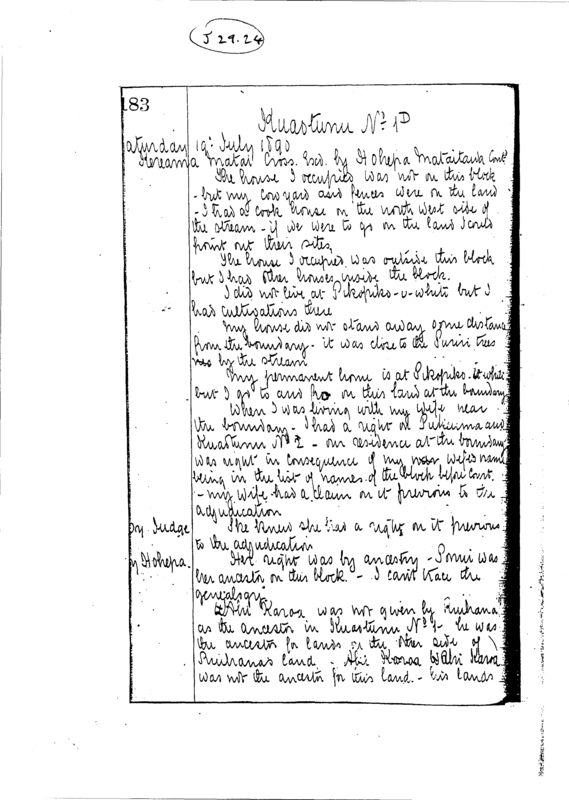 J 29.24
183
Kuaotunu No 1D
aturday 19th July 1890
Hereama Matai Cross. Exd. by Hohepa Mataitawa Cont
The house I occupied was not on this block
- but my cow yard and fences were on the land
- I had a cook house on the north west side of
the stream - if we were to go on the land I could
point out their sites
The house I occupied was outside this block
but I had other houses inside the block.
I did not live at Pikopiko-i-whiti but I
had cultivations there
My house did not stand away some distance
from the boundary - it was close to the Puriri trees
by the stream
My permanent home is at Pikopiko-i-whiti
but I go to and fro on this land at the boundary
When I was living with my wife near
the boundary - I had a right on and
Kuaotunu No 2 - our residence at the boundary
was right in consequence of my wife's name
being in the list of names of the block before Court.
- my wife had a claim on it previous to the
adjudication
by Judge She knew she had a right on it previous
to the adjudication
by Hohepa. Her right was by ancestry - was
her ancestor on this block. - I can't trace the
genealogy
Karoa was not given by Ruihana
as the ancestor in Kuaotunu No 1 - he was
the ancestor for lands on the other side of
Ruihanas land - Karoa Karoa
was not the ancestor for this land. - his lands